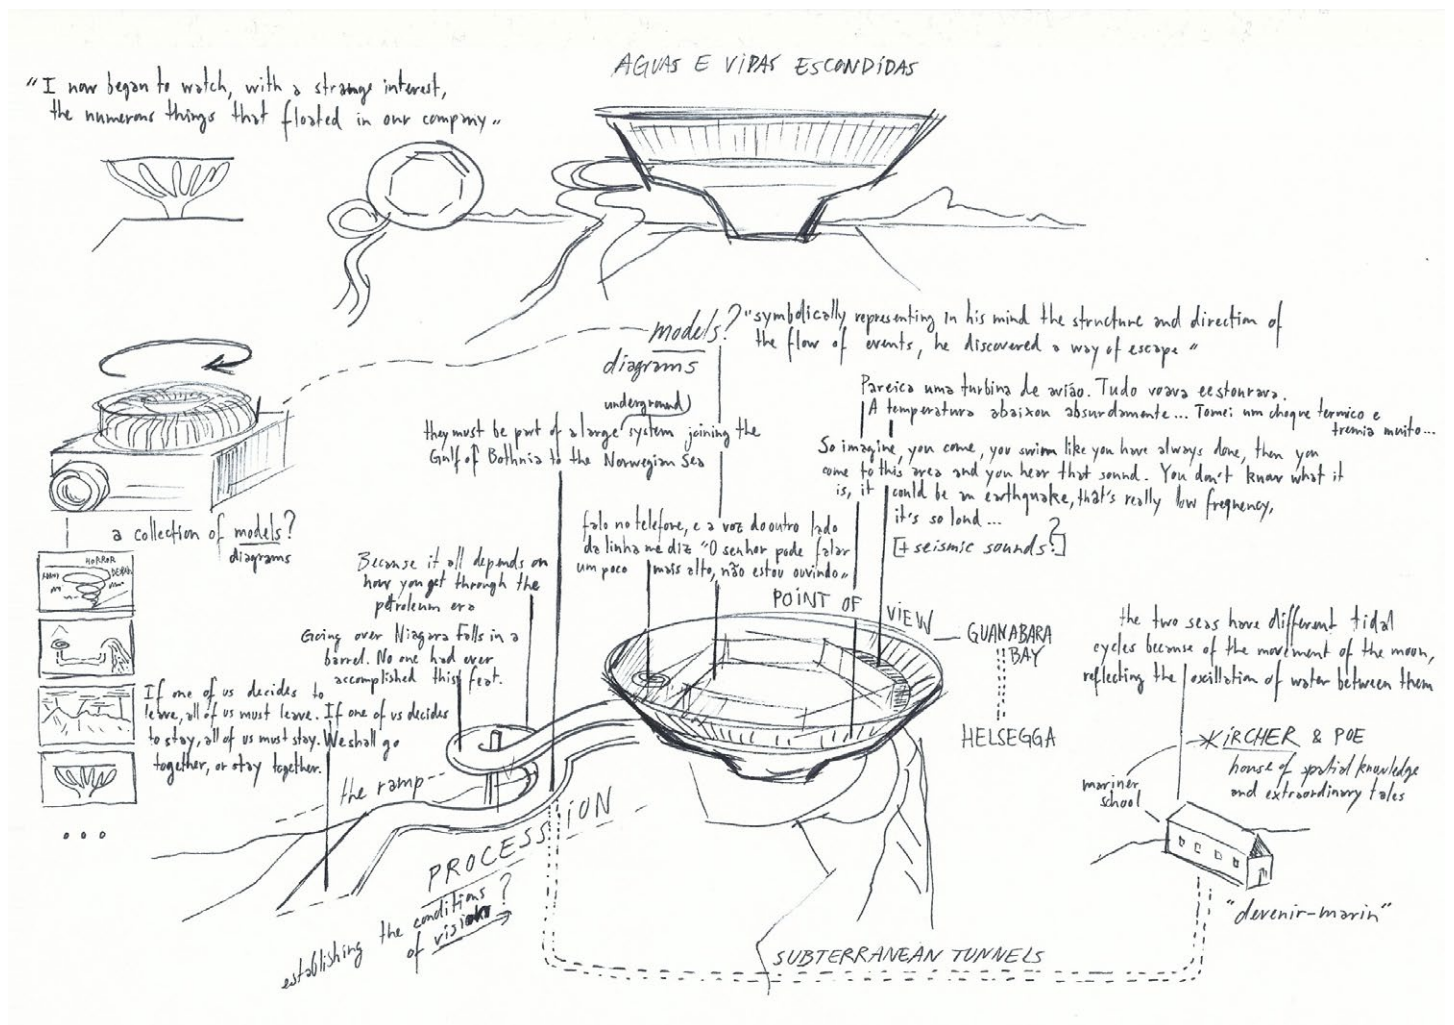 AGUAS E VIDAS ESCONDIDAS
"I now began to watch, with a strange interest,
the numerous things that floated in our company"
models?
diagrams
"symbolically representing in his mind the structure and direction of
the flow of events, he discovered a way of escape"
Pareica uma turbina de avião. Tudo voava e estourava.
A temperatura abaixou absurdamente... Tomei um choque termico e
tremia muito...
underground
they must be part of a large system joining the
Gulf of Bothnia to the Norwegian Sea
So imagine, you come, you swim like you have always done, then you
come to this area and you hear that sound. You don't know what it
is, it could be an earthquake, that's really low freqency,
it's so loud...
[+ seismic sounds?]
falo no telefone, e a voz do outro lado
da linha me diz "O senhor pode falar
um poco mais alto, não estou ouvindo"
a collection of models?
diagrams
HORROR
Because it all depends on
how you get through the
petroleum era
Going over Niagara Falls in a
barrel. No one had ever
accomplished this feat.
If one of us decides to
leave, all of us must leave. If one of us decides
to stay, all of us must stay. We shall go
together, or stay together.
POINT OF VIEW
GUANABARA
BAY
HELSEGGA
the two seas have different tidal
cycles because of the movement of the moon,
reflecting the oscillation of water between them
KIRCHER & POE
house of spatial knowledge
and extraordinary tales
mariner
school
"devenir-marin"
the ramp
PROCESSION
establishing the conditions
of vision?
SUBTERRANEAN TUNNELS